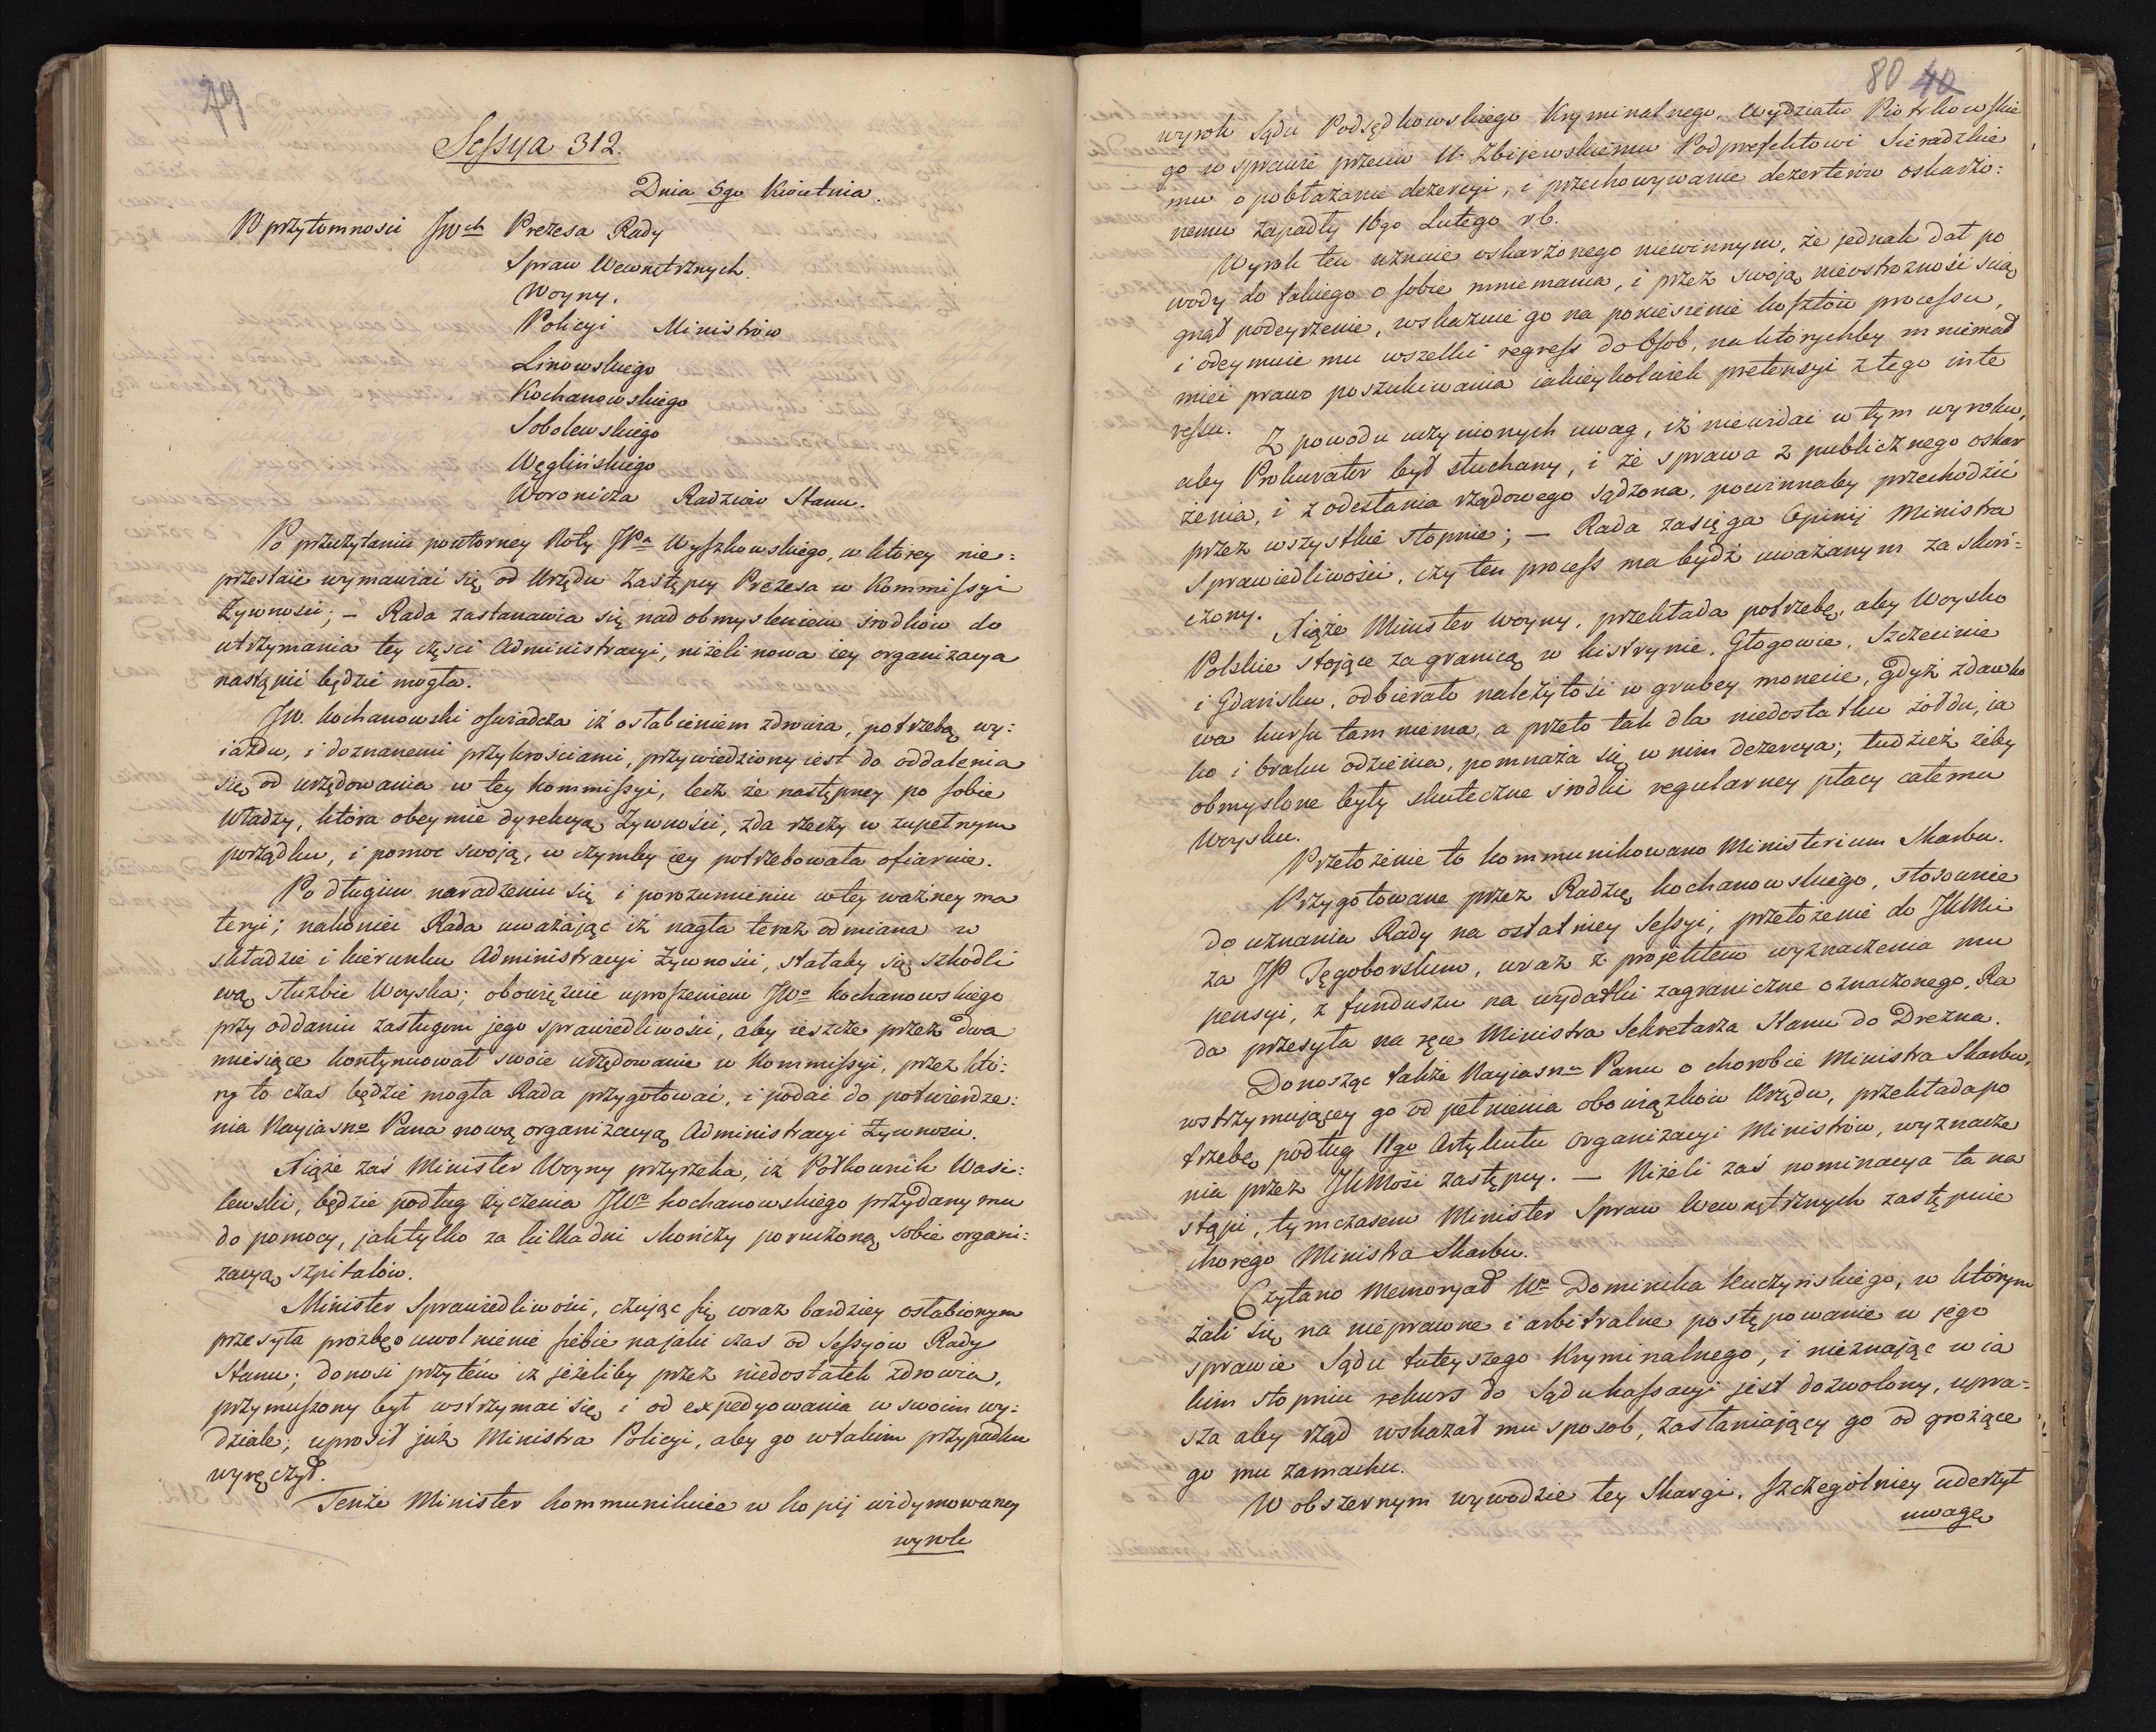 79
Sessya 312.
Dnia 5go Kwietnia.
W przytomnosci JWch Prezesa Rady
Spraw Wewnętrznych.
Woyny.
Policyi Ministrów
Linowskiego
Kochanowskiego
Sobolewskiego
Węglińskiego
Woronicza Radzców Stanu.
Po przeczytaniu powtorney Noty JPa Wyszkowskiego, w którey nie=
przestaie wymawiać się od Urzędu Zastępcy Prezesa w Kommissyi
Żywności; – Rada zastanawia się nad obmysleniem srodków do
utrzymania tey części Administracyi, niżeli nowa iey organizacya
nastąpić będzie mogła.
JW. Kochanowski oświadcza iż osłabieniem zdrowia, potrzebą wy=
iazdu, i doznanemi przykrościami, przywiedziony iest do oddalenia
się od urzędowania w tey Kommissyi, lecz że następney po sobie
Władzy, która obeymie dyrekcyą Żywności, zda rzeczy w zupełnym
porządku, i pomoc swoją, w czymby iey potrzebowała ofiaruie.
Po długim naradzeniu się i porozumieniu w tey ważney ma
teryi; nakoniec Rada uważając iż nagła teraz odmiana w
składzie i kierunku Administracyi Żywności, stałaby się szkodli
wą służbie Woyska; obowięzuie uproszeniem JWo Kochanowskiego
przy oddaniu zasługom jego sprawiedliwości, aby ieszcze przez dwa
miesiące kontynuował swoie urzędowanie w Kommissyi, przez któ=
ry to czas będzie mogła Rada przygotować, i podać do potwierdze=
nia Nayiasno Pana nową organizacyą Administracyi Żywności.
Xiąże zaś Minister Woyny przyrzeka, iż Połkownik Wasi=
lewski, będzie podług życzenia JWo Kochanowskiego przydany mu
do pomocy, jak tylko za kilka dni skończy poruczoną sobie organi=
zacyą szpitalów.
Minister Sprawiedliwości, czując się coraz bardziey osłabionym
przesyła prozbę o uwolnienie siebie na jaki czas od Sessyów Rady
Stanu; donosi przytém iż jeżeliby przez niedostatek zdrowia,
przymuszony był wstrzymać się i od expedyowania w swoim wy=
dziale; uprosił już Ministra Policyi, aby go w takim przypadku
wyręczył.
Tenże Minister kommunikuie w kopij widymowaney
wyrok
80 40
wyrok Sądu Podsędkowskiego Kryminalnego, Wydziału Piotrkowskie
go w sprawie przeciw W. Zbijewskiemu Podprefektowi Sieradzkie
mu o pobłażanie dezercyi, i przechowywanie dezerterów oskarżo=
nemu zapadły 16go Lutego r.b.
Wyrok ten uznaie oskarżonego niewinnym, że jednak dał po
wody do takiego o sobie mniemania, i przez swoją nieostrożność scią
gnął podeyrzenie, wskazuie go na poniesienie kosztów processu,
i odeymuie mu wszelki regress do Osób, na którychby mniemał
mieć prawo poszukiwania iakieykolwiek pretensyi z tego inte
ressu.
Z powodu uczynionych uwag, iż niewidać w tym wyroku,
aby Prokurator był słuchany, i że sprawa z publicznego oskar
żenia, i z odesłania rządowego sądzona, powinnaby przechodzić
przez wszystkie stopnie; – Rada zasięga Opinij Ministra
Sprawiedliwości, czy ten process ma bydź uważanym za skoń=
czony.
Xiąże Minister Woyny, przekłada potrzebę, aby Woysko
Polskie stojące zagranicą w Kistrynie, Głogowie, Szczecinie
i Gdańsku, odbierało należytość w grubey monecie, gdyż zdawko
wa kursu tam niema, a przeto tak dla niedostatku żołdu, ia
ko i braku odzienia, pomnaża się w nim dezercya; tudzież żeby
obmyslone były skuteczne srodki regularney płacy całemu
Woysku.
Przełożenie to kommunikowano Ministerium Skarbu.
Przygotowane przez Radzcę Kochanowskiego, stosownie
do uznania Rady na ostatniey Sessyi, przełożenie do JKMci
za JP Tęgoborskim, wraz z projektem wyznaczenia mu
pensyi, z funduszu na wydatki zagraniczne oznaczonego, Ra
da przesyła na ręce Ministra Sekretarza Stanu do Drezna.
Donosząc także Nayiasno Panu o chorobie Ministra Skarbu,
wstrzymującey go od pełnienia obowiązków Urzędu, przekłada po
trzebę podług 11go Artykułu Organizacyi Ministrów, wyznacze
nia przez JKMość zastępcy. – Niżeli zaś nominacya ta na
stąpi, tymczasem Minister Spraw Wewnętrznych zastępuie
chorego Ministra Skarbu.
Czytano Memoryał Wo Dominika Kuczyńskiego, w którym
żali się na nieprawne i arbitralne postępowanie w jego
sprawie Sądu tuteyszego Kryminalnego, i nieznając w ia
kim stopniu rekurs do Sądu kassacyi jest dozwolony, upra=
sza aby rząd wskazał mu sposob, zasłaniający go od grożące
go mu zamachu.
W obszernym wywodzie tey Skargi, szczególniey uderzył
uwagę